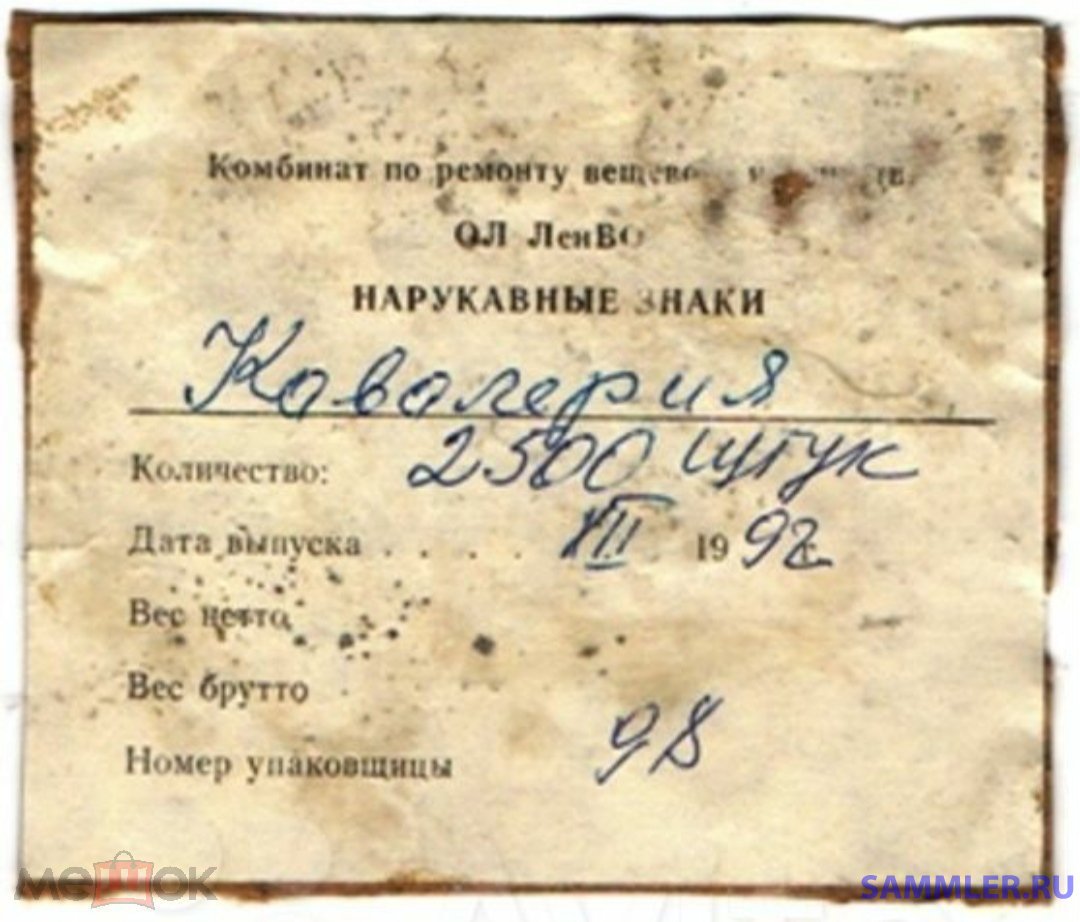 Комбинат по ремонту
ОЛ ЛенВО
НАРУКАВНЫЕ ЗНАКИ
Кавалерия
Количество: 2500 штук
Дата выпуска . . . . 19 92
Вес нетто
Вес брутто
Номер упаковщицы 98
мешок
SAMMLER.RU